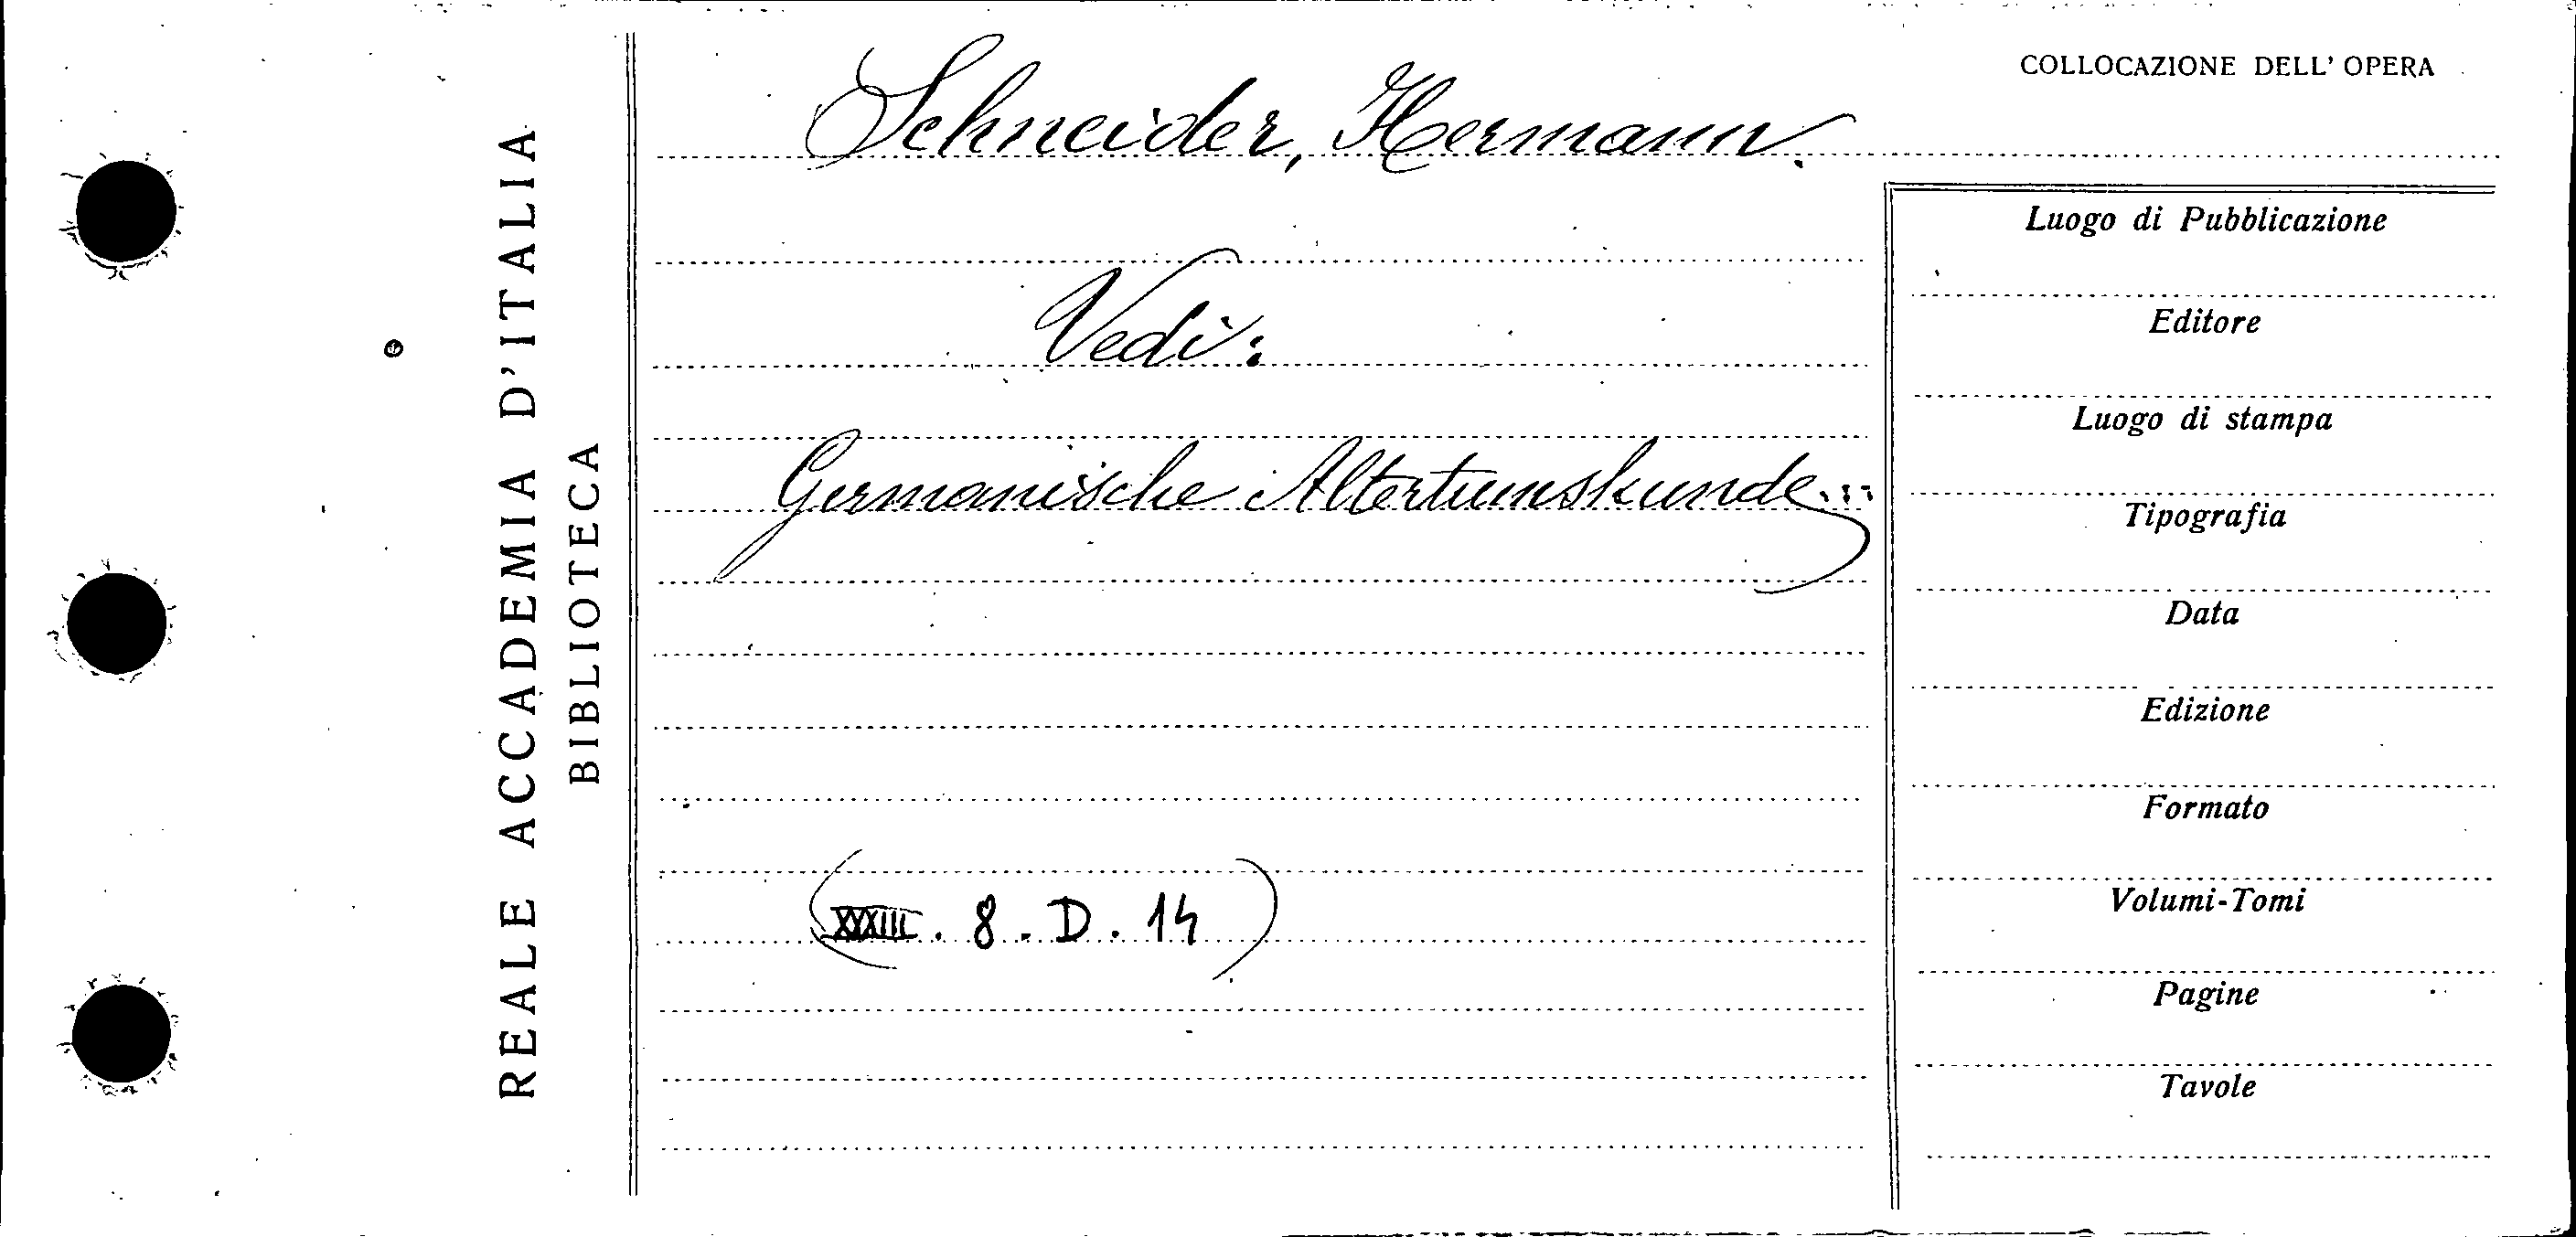 REALE ACCADEMIA D'ITALIA
BIBLIOTECA
COLLOCAZIONE DELL'OPERA
Schneider, Hermann.
Vedi:
Germanische Altertumskunde...
(XXXIII. 8. D. 14)
Luogo di Pubblicazione
Editore
Luogo di stampa
Tipografia
Data
Edizione
Formato
Volumi-Tomi
Pagine
Tavole